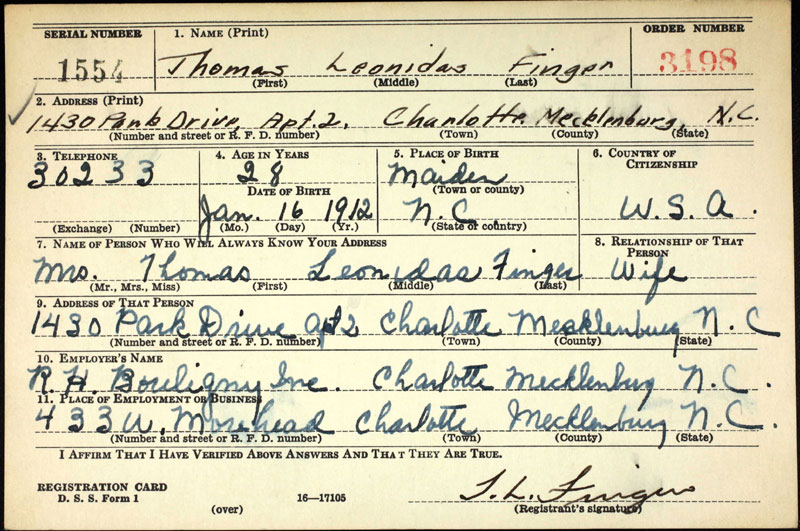 SERIAL NUMBER 1. NAME (Print) ORDER NUMBER
1554 Thomas Leonidas Finger 3198
(First) (Middle) (Last)
2. ADDRESS (Print)
1430 Park Drive, Apt. 2. Charlotte. Mecklenburg, N.C.
(Number and street or R. F. D. number) (Town) (County) (State)
3. TELEPHONE 4. AGE IN YEARS 5. PLACE OF BIRTH 6. COUNTRY OF CITIZENSHIP
30233 28 Maiden
DATE OF BIRTH (Town or county)
Jan. 16 1912 N.C. U.S.A.
(Exchange) (Number) (Mo.) (Day) (Yr.) (State or country)
7. NAME OF PERSON WHO WILL ALWAYS KNOW YOUR ADDRESS 8. RELATIONSHIP OF THAT PERSON
Mrs. Thomas Leonidas Finger Wife
(Mr., Mrs., Miss) (First) (Middle) (Last)
9. ADDRESS OF THAT PERSON
1430 Park Drive apt 2 Charlotte Mecklenburg N.C
(Number and street or R. F. D. number) (Town) (County) (State)
10. EMPLOYER'S NAME
R.H. Bouligny Inc. Charlotte Mecklenburg N.C.
11. PLACE OF EMPLOYMENT OR BUSINESS
433 W. Morehead Charlotte Mecklenburg N.C.
(Number and street or R. F. D. number) (Town) (County) (State)
I AFFIRM THAT I HAVE VERIFIED ABOVE ANSWERS AND THAT THEY ARE TRUE.
REGISTRATION CARD
D. S. S. Form 1 (over) 16—17105 T. L. Finger
(Registrant's signature)